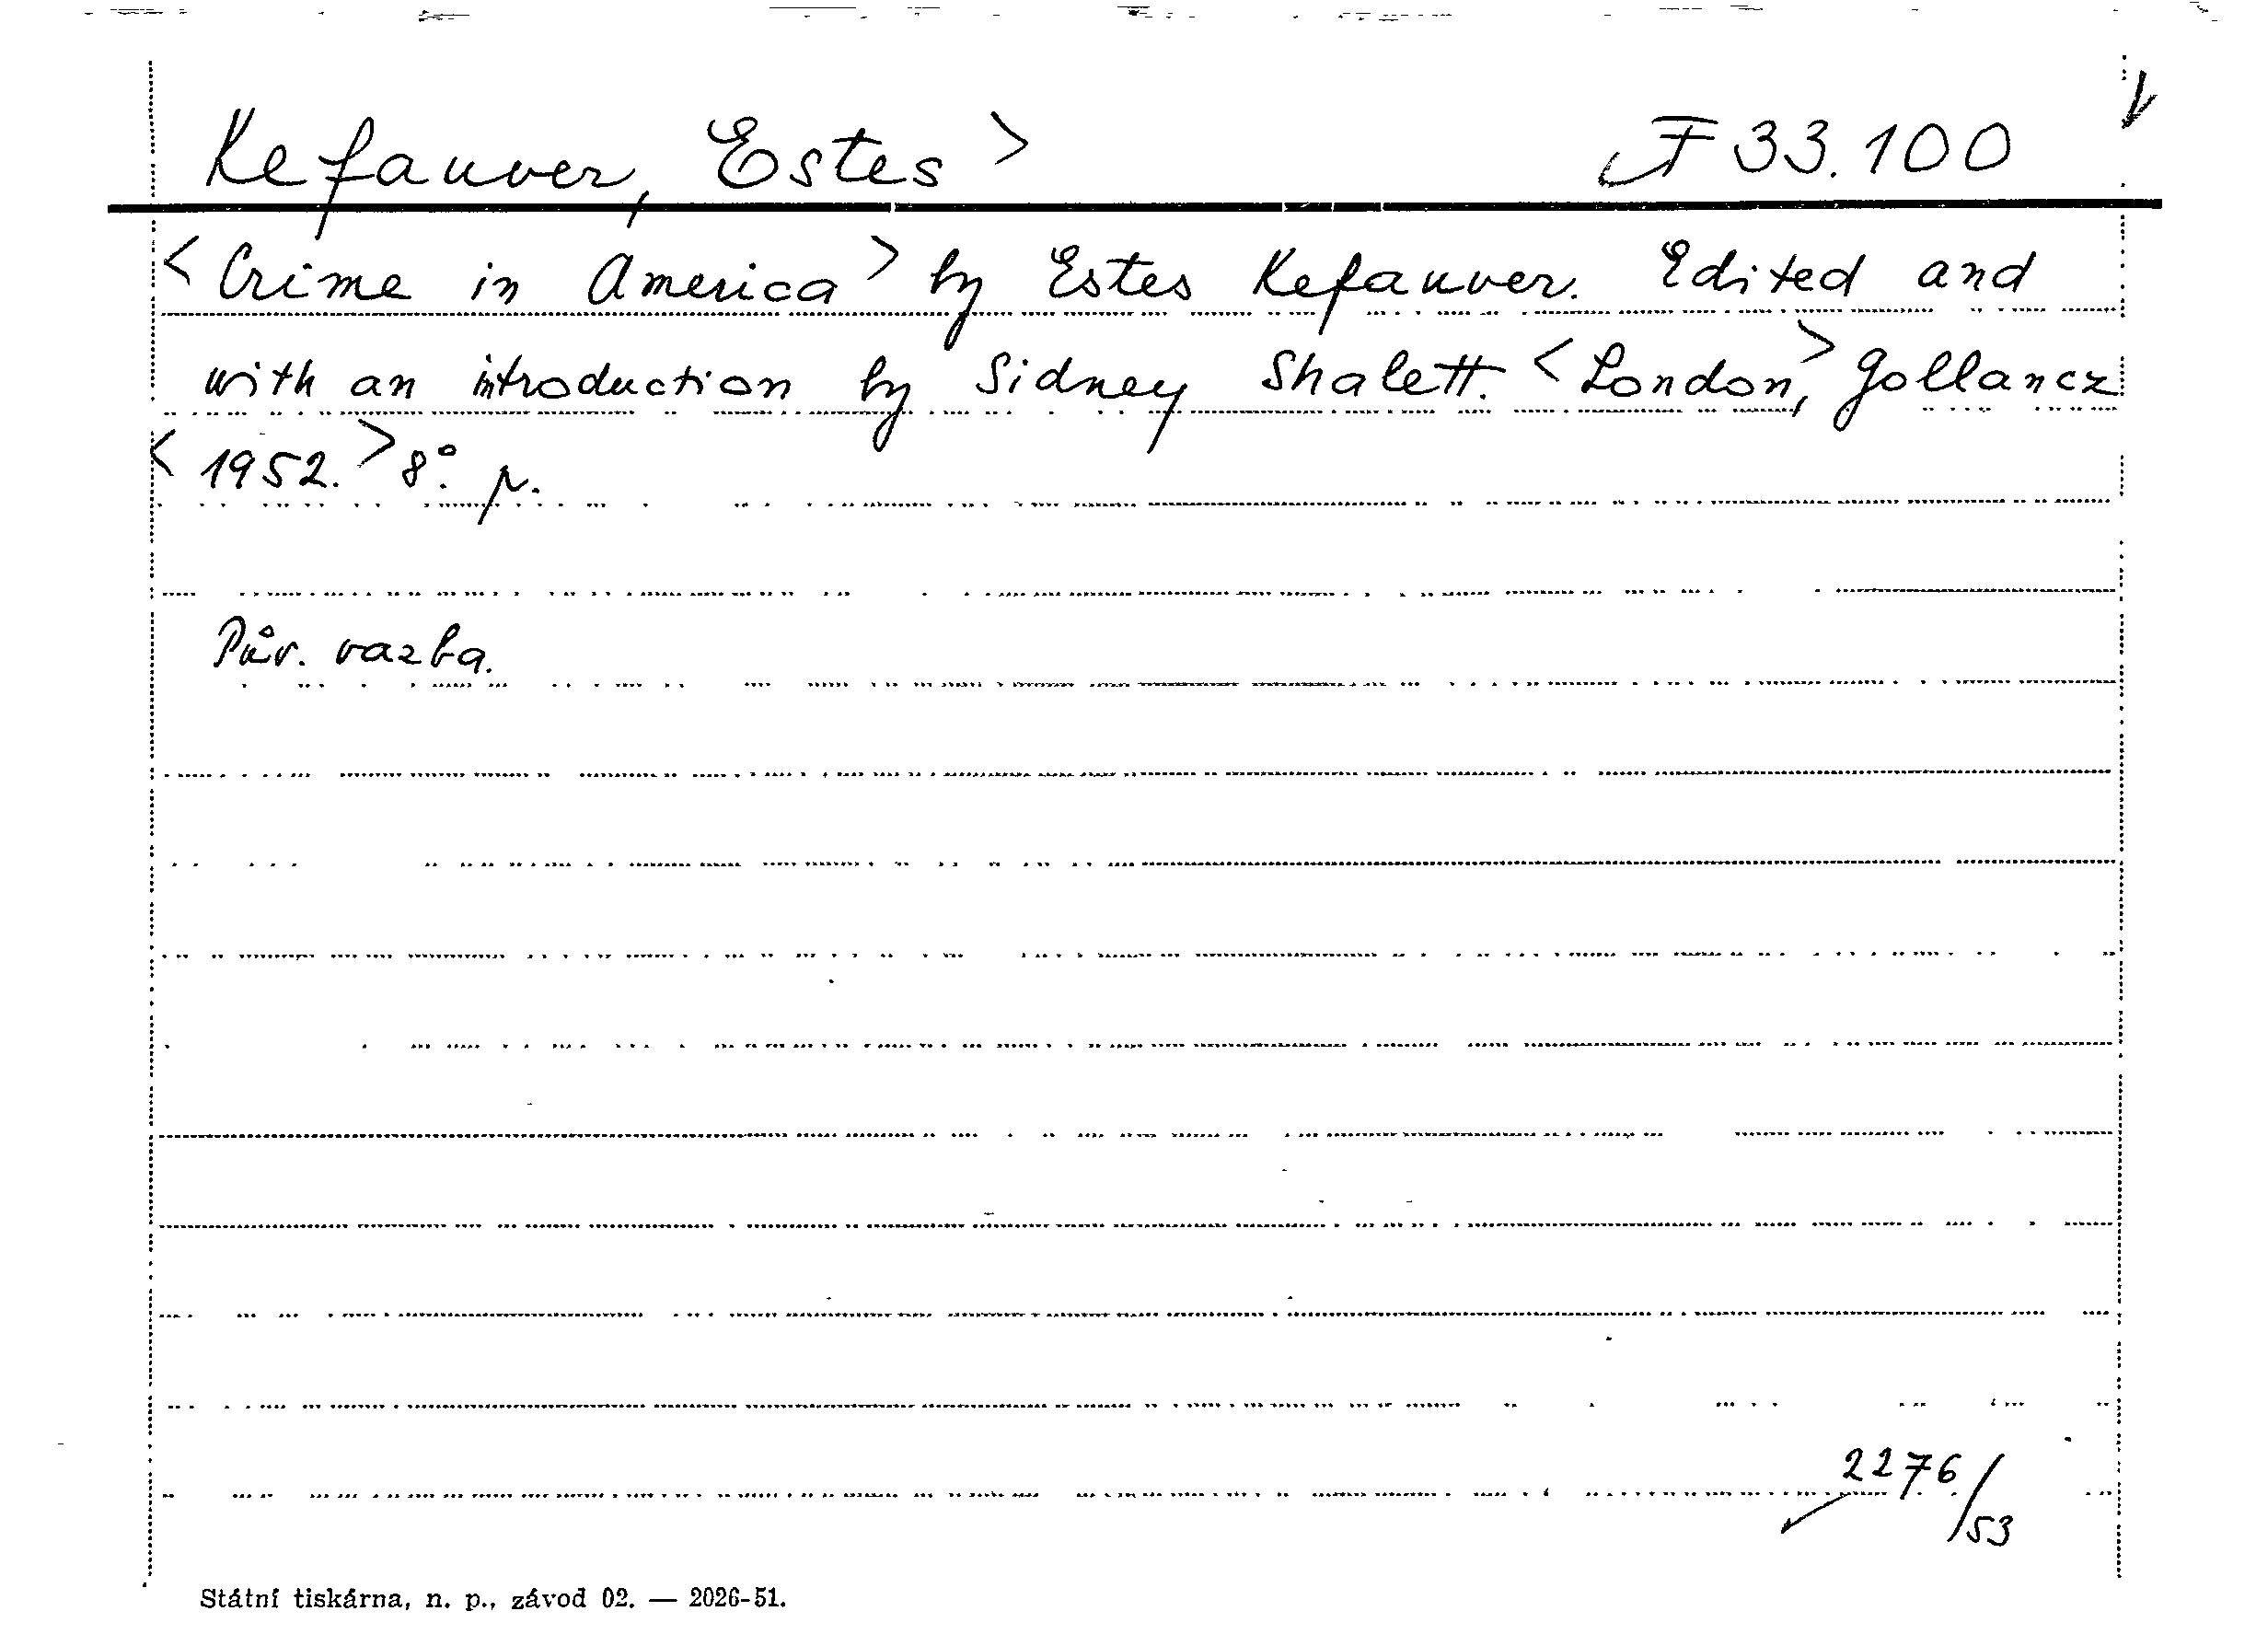 Kefauver, Estes > F 33.100
< Crime in America > by Estes Kefauver. Edited and
with an introduction by Sidney Shalett. < London, > Gollancz
< 1952. > 8°. p.
Pův. vazba.
2276/53
Státní tiskárna, n. p., závod 02. — 2026-51.